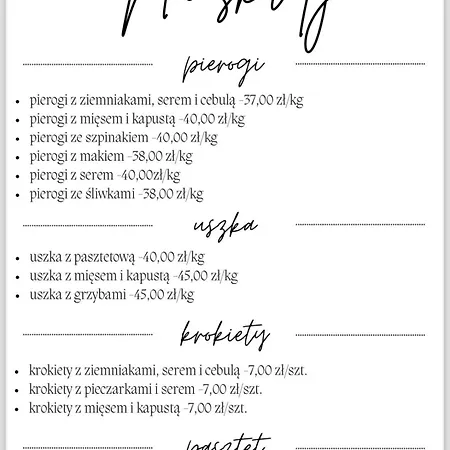 pierogi
pierogi z ziemniakami, serem i cebulą -37,00 zł/kg
pierogi z mięsem i kapustą -40,00 zł/kg
pierogi ze szpinakiem -40,00 zł/kg
pierogi z makiem -38,00 zł/kg
pierogi z serem -40,00zł/kg
pierogi ze śliwkami -38,00 zł/kg
uszka
uszka z pasztetową -40,00 zł/kg
uszka z mięsem i kapustą -45,00 zł/kg
uszka z grzybami -45,00 zł/kg
krokiety
krokiety z ziemniakami, serem i cebulą -7,00 zł/szt.
krokiety z pieczarkami i serem -7,00 zł/szt.
krokiety z mięsem i kapustą -7,00 zł/szt.
pasztet